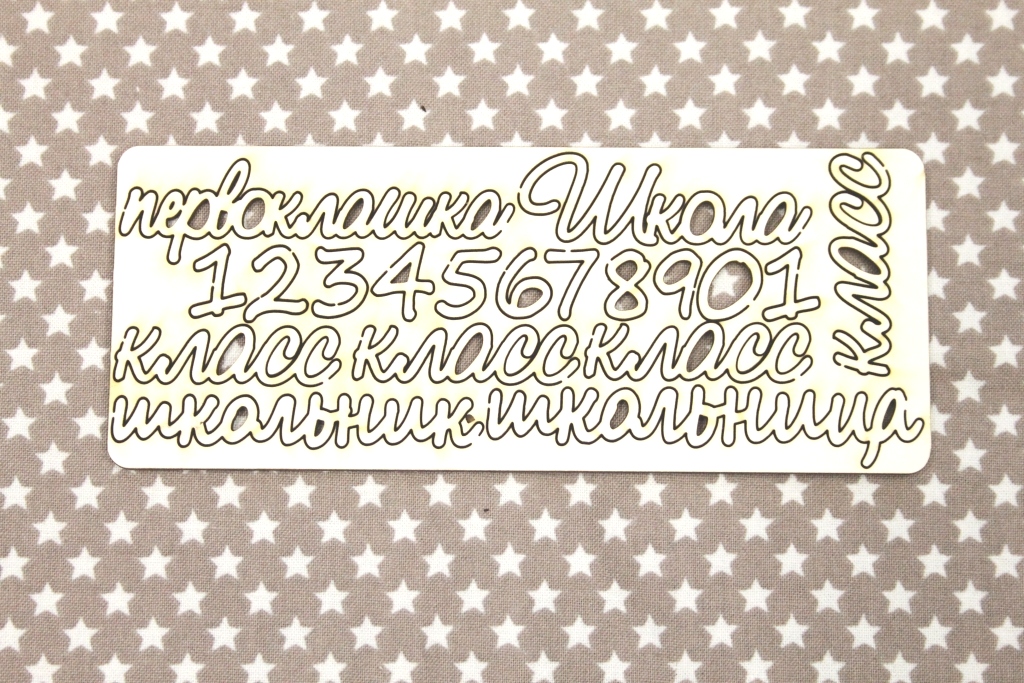 первоклашка Школа
12345678901
класс класс класс
школьник школьница
класс